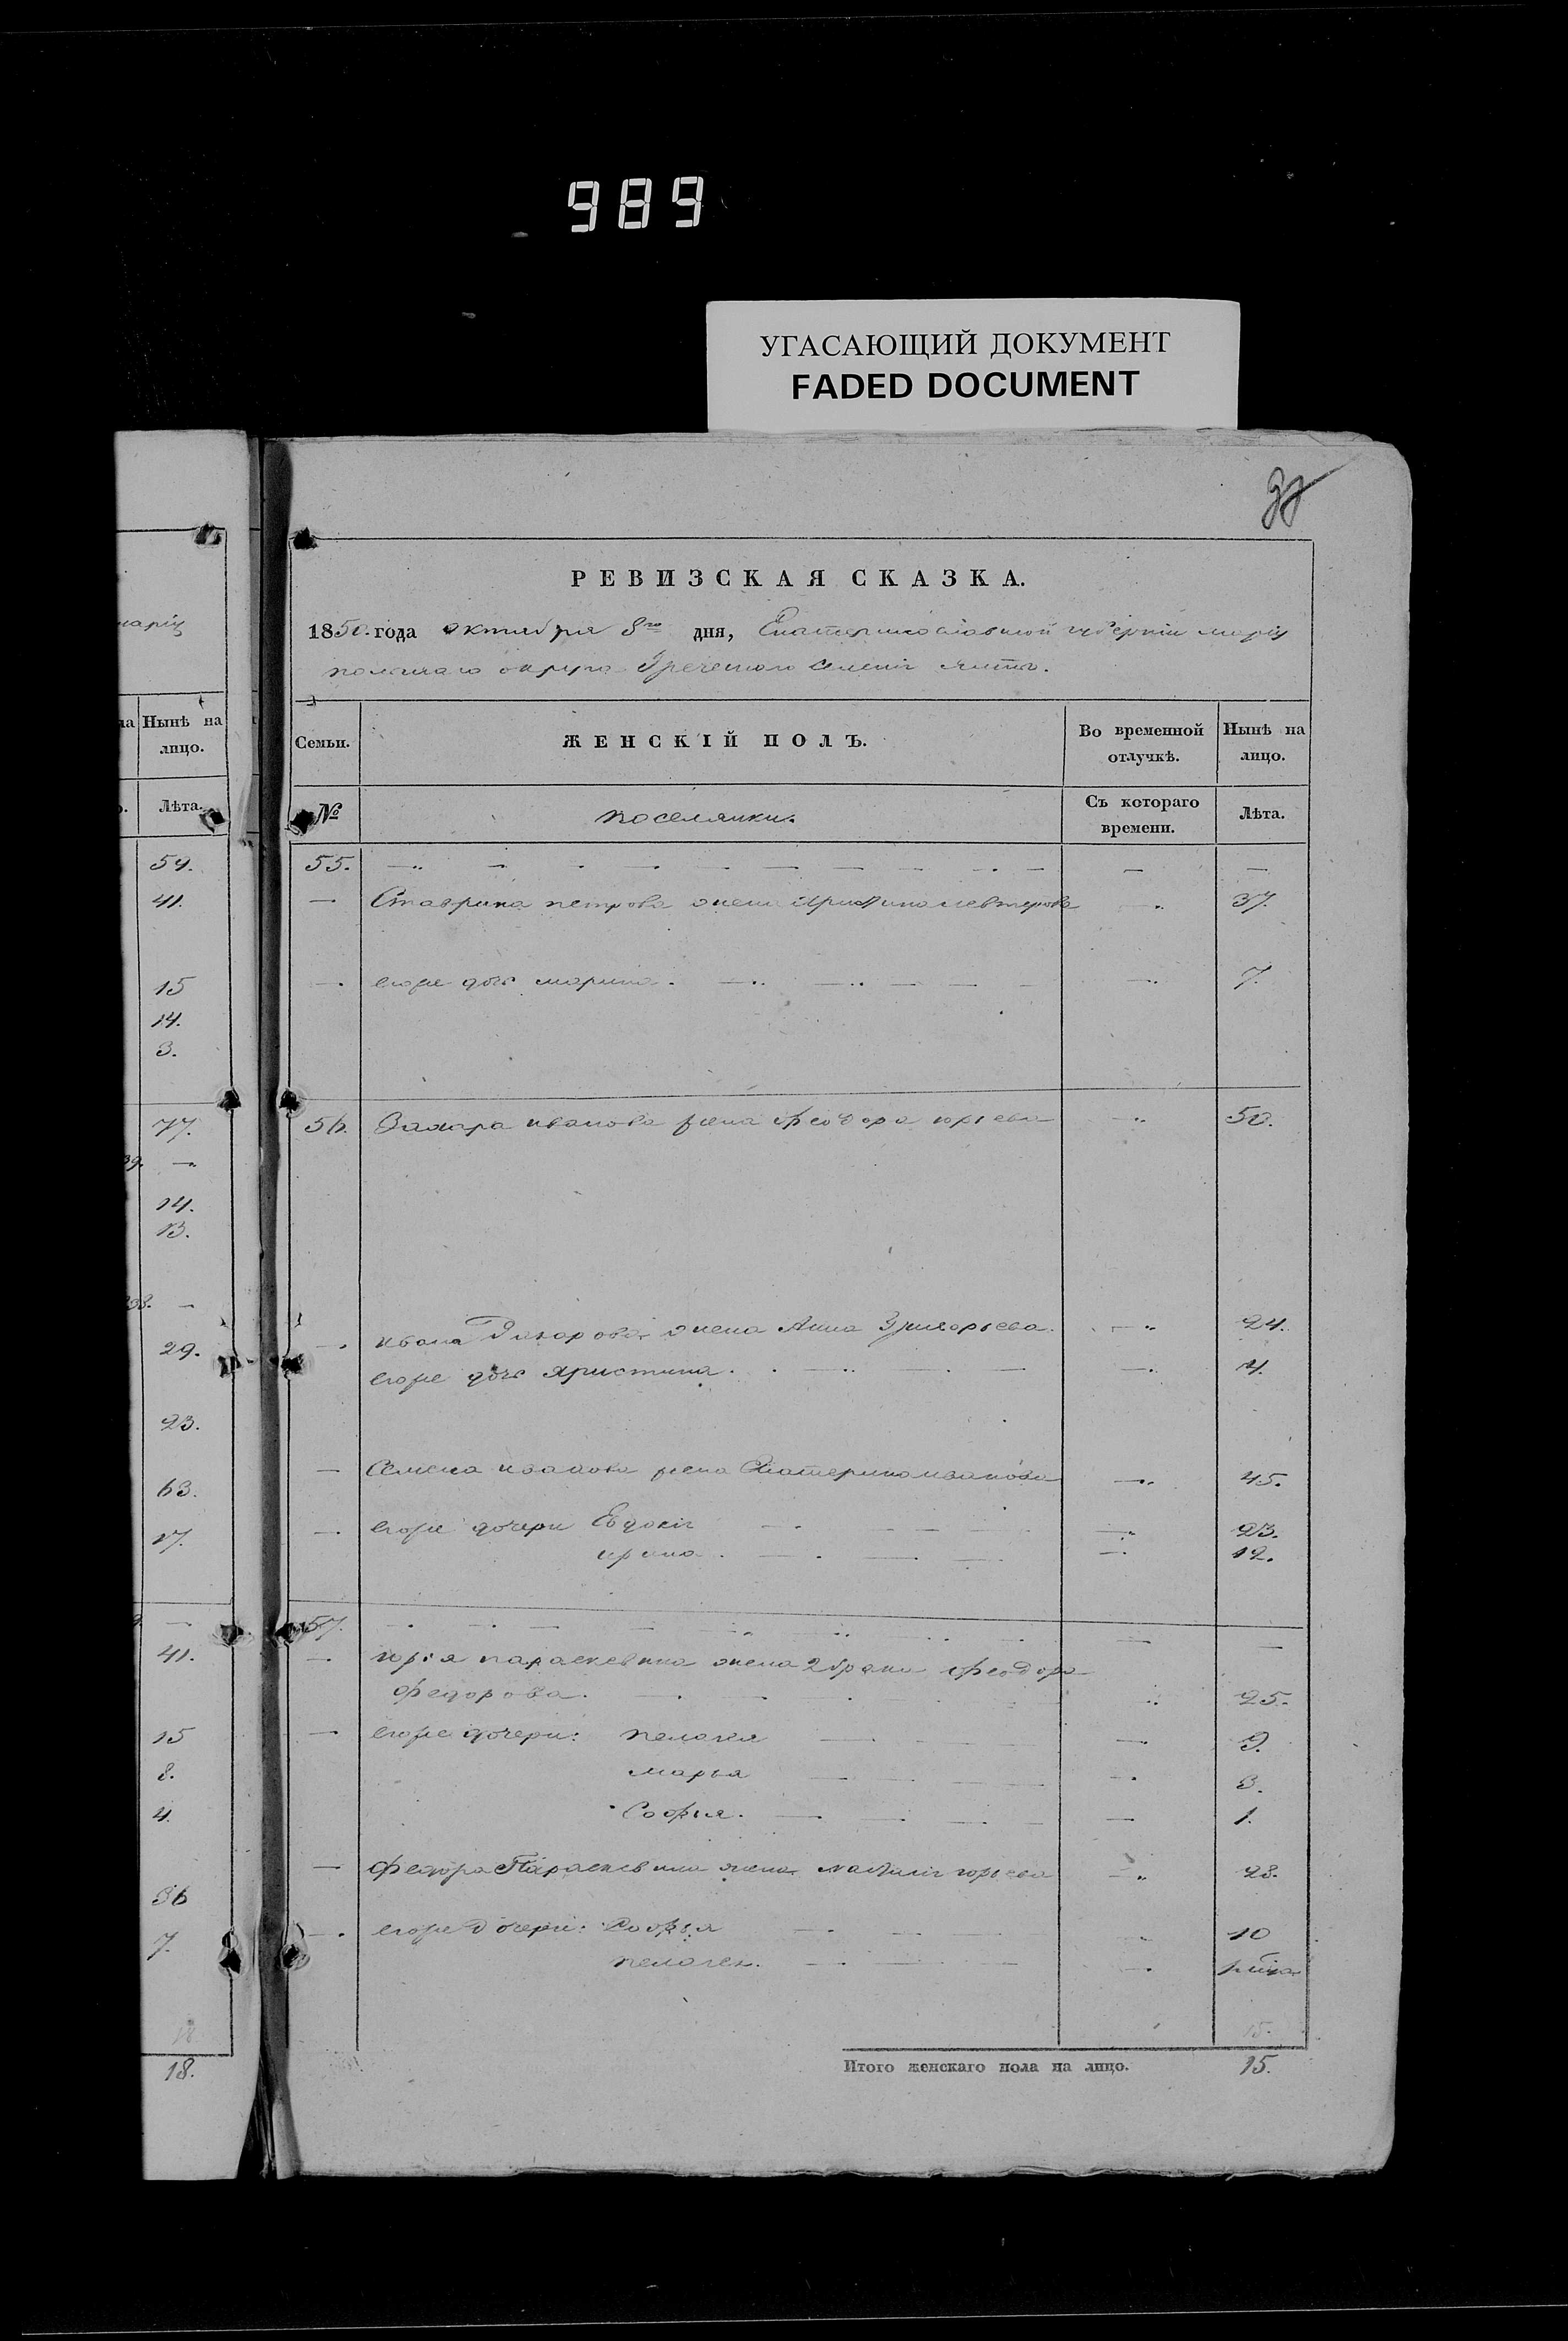 989
УГАСАЮЩИЙ ДОКУМЕНТ
FADED DOCUMENT
РЕВИЗСКАЯ СКАЗКА.
1850. года октября 8го дня, Екатеринославской губернии мариу
польскаго округа Греческаго селенія Ялты.
марiу
Нынѣ на лицо.
Лѣта.
59.
41.
15
14.
3.
77.
39. —
14.
13.
838. —
29.
23.
63.
17.
—
41.
15
8.
4.
36
7.
18.
18.
Семьи.
ЖЕНСКІЙ ПОЛЪ.
Во временной отлучкѣ.
Нынѣ на лицо.
№
поселянки.
Съ котораго времени.
Лѣта.
55. — — —
— Ставрина петрова жена — 37.
— егоже дочь марина. — 7.
56. Захара иванова жена феодора юрьева — 50.
— ивана Захарова жена Анна Григорьева. — 24.
егоже дочь христина. — 4.
— Семена иванова жена Екатерина иванова — 45.
— егоже дочери Евдокія — 23.
ирина. — 12.
57. — — —
— юрія параскевина жена 2 брака феодора
федорова. — 25.
— егоже дочери: пелагея — 9.
марья — 3.
Софья. — 1.
— федора Параскевина жена наталія юрьева — 28.
— егоже дочери: Софья — 10
пелагея. —
15.
Итого женскаго пола на лицо. 15.